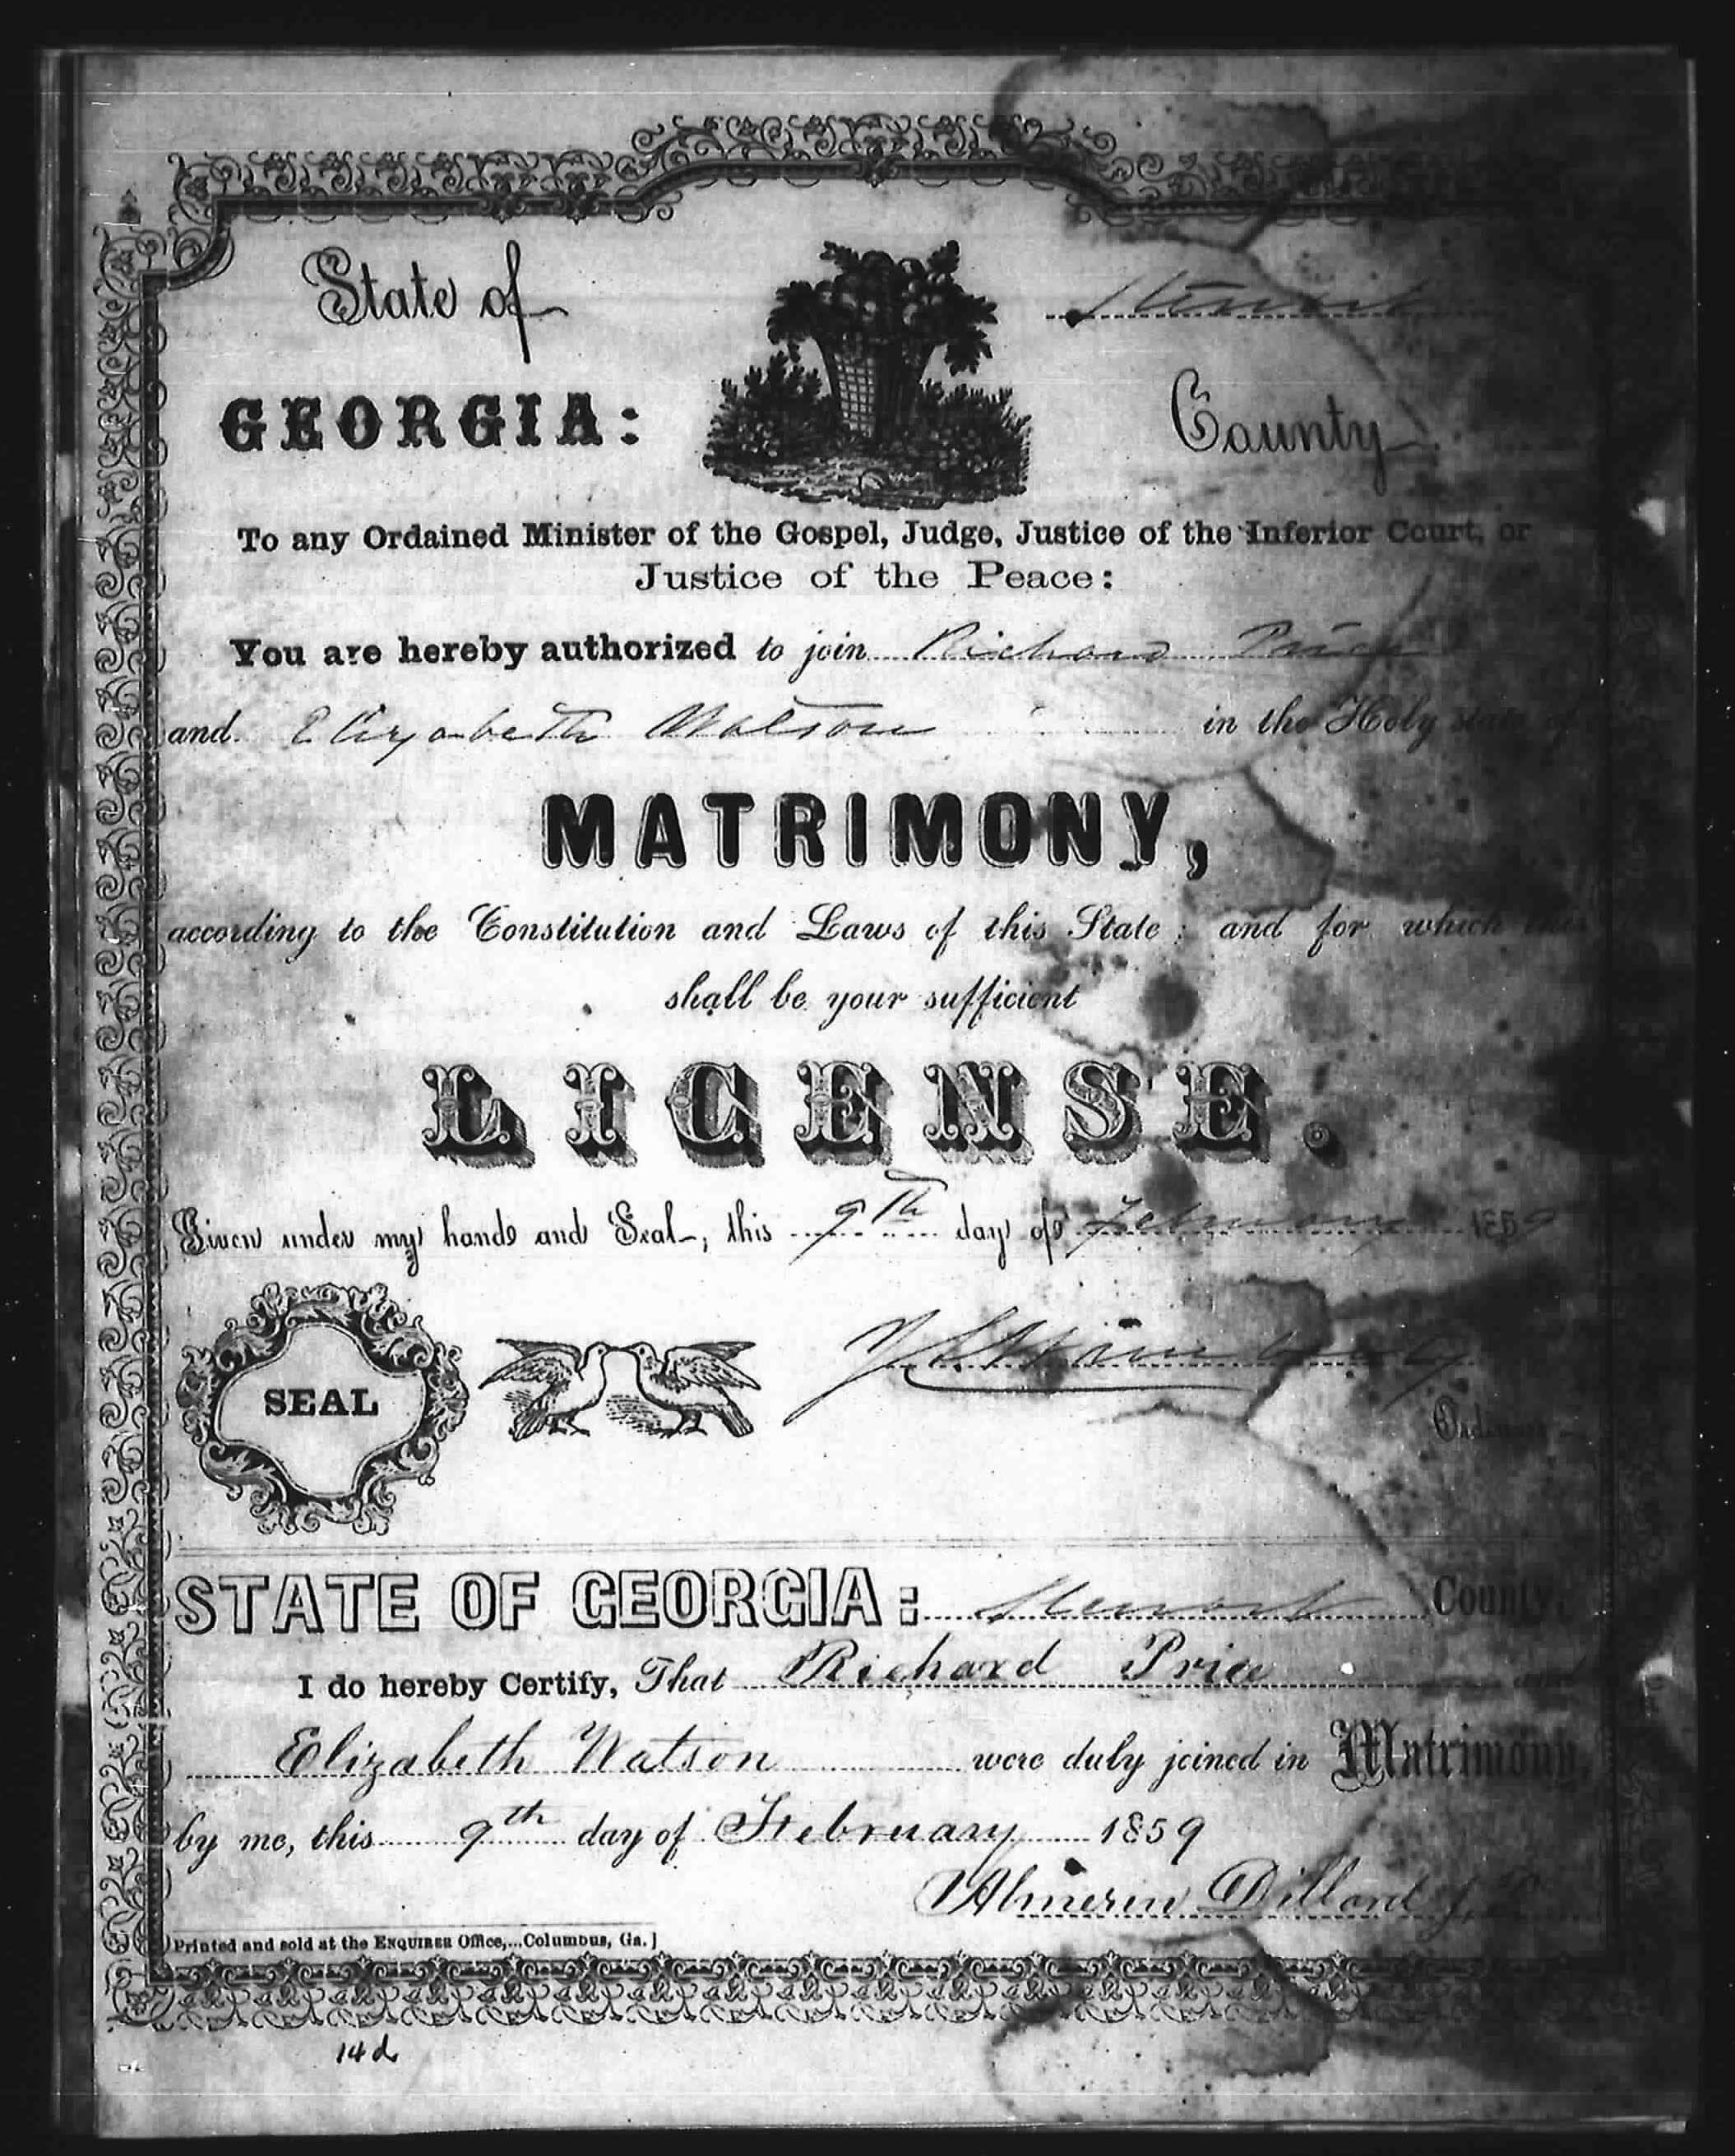 State of Stewart
GEORGIA: County
To any Ordained Minister of the Gospel, Judge, Justice of the Inferior Court, or
Justice of the Peace:
You are hereby authorized to join Richard Price
and Elizabeth Watson in the Holy state
MATRIMONY,
according to the Constitution and Laws of this State; and for which this
shall be your sufficient
LICENSE.
Given under my hand and Seal, this 9th day of February 1859
SEAL
Ordinary
STATE OF GEORGIA: Stewart County.
I do hereby Certify, That Richard Price and
Elizabeth Watson were duly joined in Matrimony,
by me, this 9th day of February 1859
Almerin Dillard J.
Printed and sold at the ENQUIRER Office,...Columbus, Ga.]
14 d